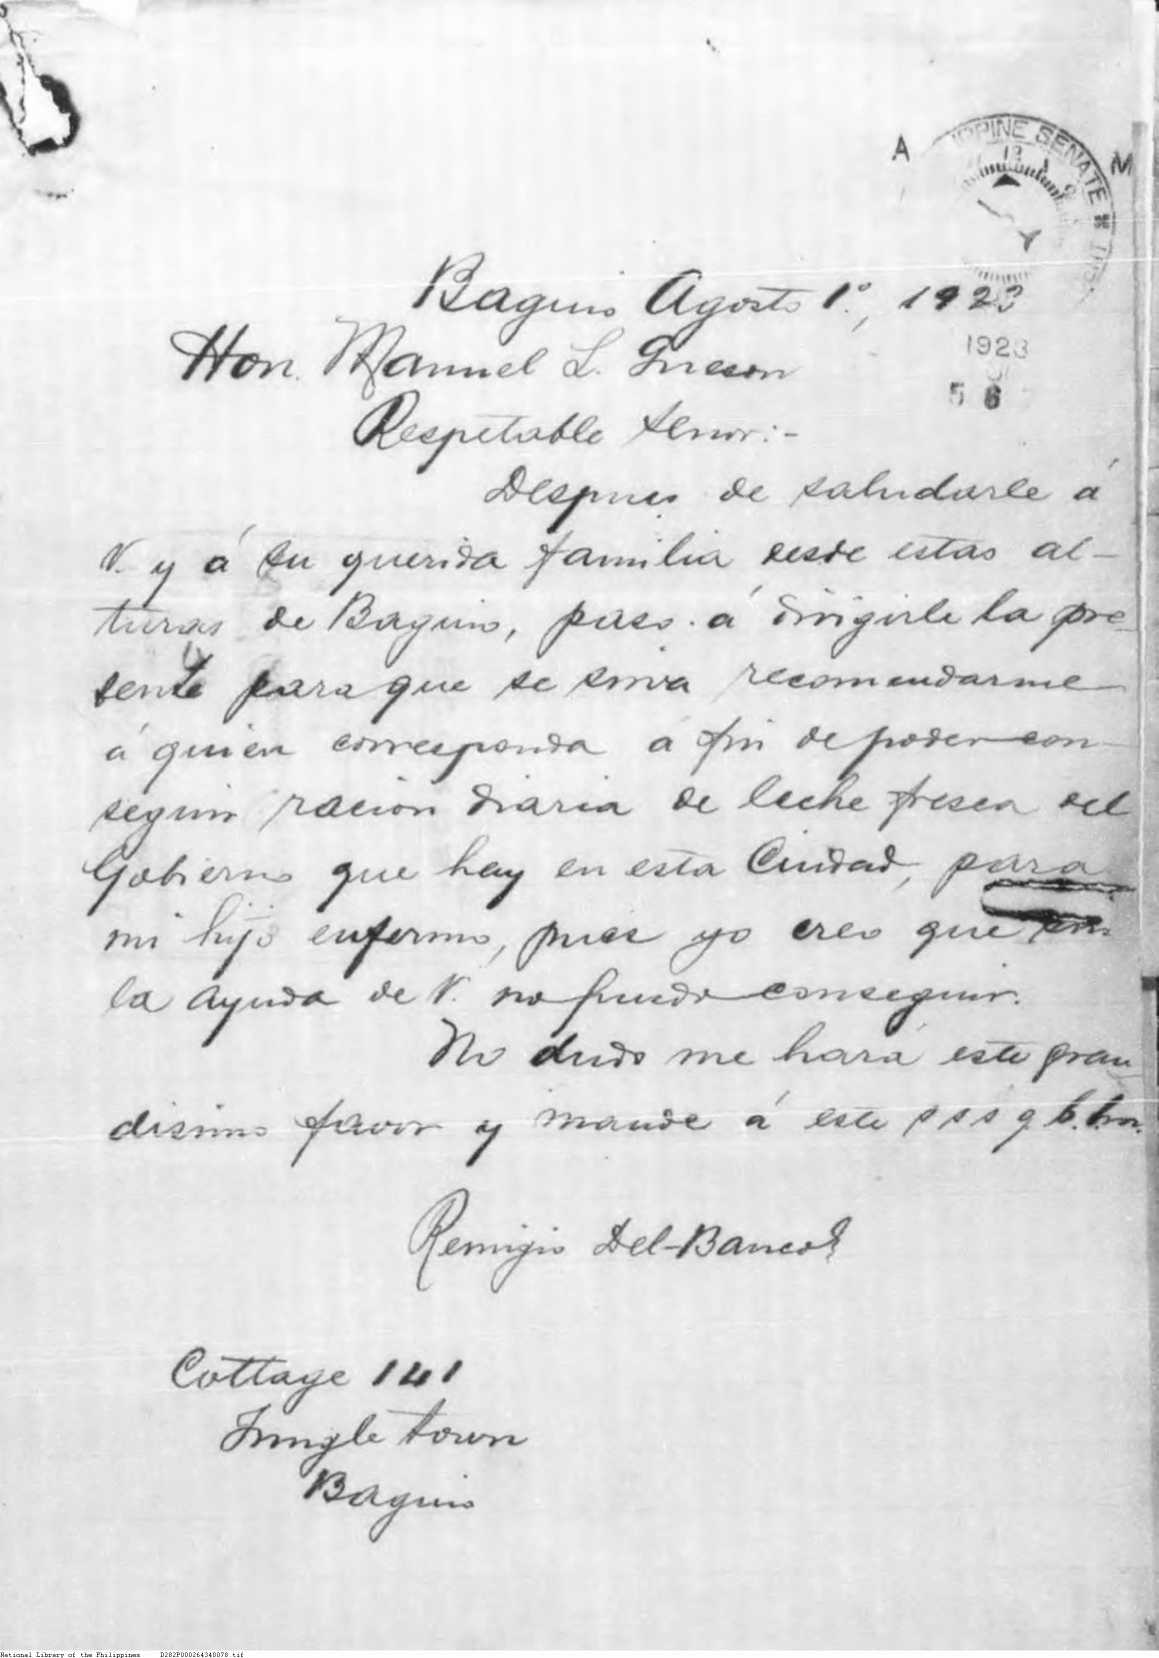 A M
PHILIPPINE SENATE
Baguio Agosto 1º, 1923
1923
Hon. Manuel L. Quezon
5 6
Respetable señor:-
Después de saludarle á
V. y á su querida familia desde estas al-
turas de Baguio, paso á dirigirle la pre-
sente para que se sirva recomendarme
á quien corresponda á fin de poder con-
seguir racion diaria de leche fresca del
Gobierno que hay en esta Ciudad, para
mi hijo enfermo, pues yo creo que sin
la ayuda de V. no puedo conseguir.
No dudo me hará este gran-
disimo favor y mande á este s s s q b. s. m.
Remigio Del-Banco
Cottage 141
Jungle town
Baguio
National Library of the Philippines D282P000264340078.tif